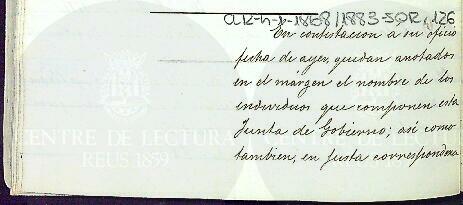 a12-h-1-1868/1883-SQR, 126
En contestacion a su oficio
fecha de ayer, quedan anotados
en el márgen el nombre de los
individuos que componen esta
Junta de Gobierno; así como
tambien, en justa corresponden
CENTRE DE LECTURA
REUS 1859
CENTRE DE LEC